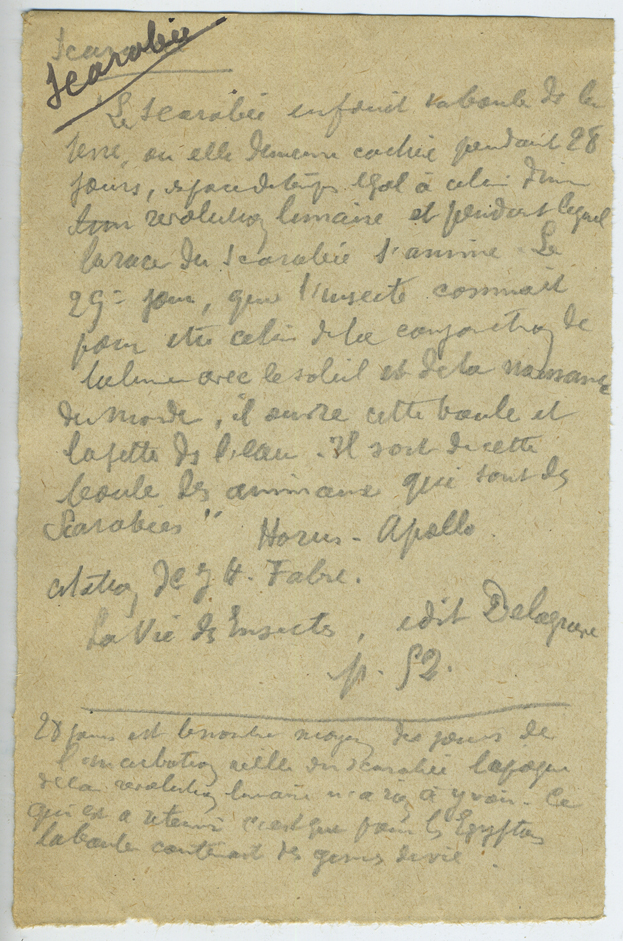 Scarabée
Scarabée
"Le Scarabée enfouit sa boule ds la
terre, où elle demeure cachée pendant 28
jours, espace de temps égal à celui d'une
revolution lunaire et pendant lequel
la race du Scarabée s'anime. Le
29e jour, que l'insecte connait
pour etre celui de la conjonction de
la lune avec le soleil et de la naissance
du monde, il ouvre cette boule et
la jette ds l'eau. Il sort de cette
boule des animaux qui sont des
Scarabées"
Horus-Apollo
citation de J H. Fabre.
La Vie des Insectes, edit Delagrave
p. 52.
28 jours est le nombre moyen des jours de
l'incubation celle du scarabée
de la revolution lunaire n'a rien à y voir. Ce
qui est a retenir c'est que pour les Egyptiens
la boule contenait des germes de vie.